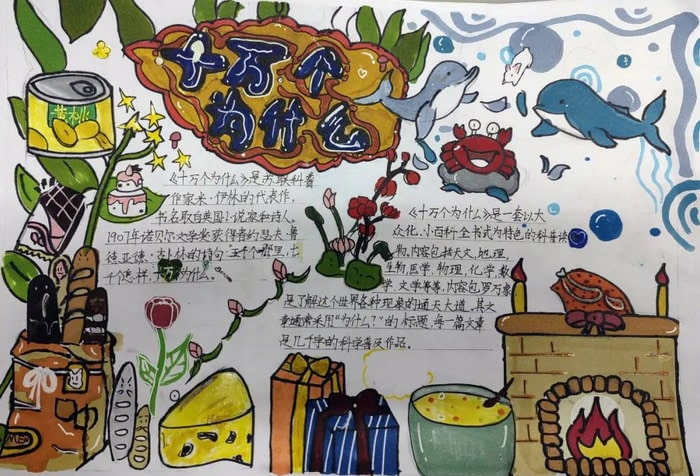 十万个
为什么
黄桃
《十万个为什么》是苏联科普
作家米·伊林的代表作,
书名取自英国小说家和诗人,
1907年诺贝尔文学奖获得者约瑟夫·鲁
德亚德·吉卜林的诗句"五千个哪里,七
千个怎样,十万个为什么。
《十万个为什么》是一套以大
众化、小百科全书式为特色的科普读
物,内容包括天文,地理,
生物,医学,物理,化学,数
学,文学等等,内容包罗万象
是了解这个世界各种现象的通天大道,其文
章通常采用"为什么?"的标题,每一篇文章
是几千字的科学普及作品。